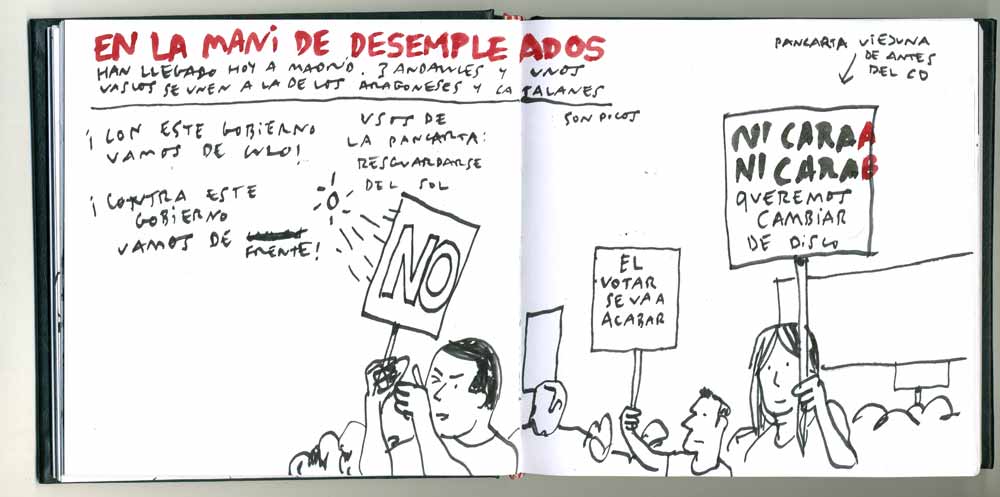 EN LA MANI DE DESEMPLEADOS
HAN LLEGADO HOY A MADRID. 3 ANDALUCES Y UNOS
VASCOS SE UNEN A LA DE LOS ARAGONESES Y CATALANES
SON POCOS
¡CON ESTE GOBIERNO
VAMOS DE CULO!
¡CONTRA ESTE
GOBIERNO
VAMOS DE
FRENTE!
USOS DE
LA PANCARTA:
RESGUARDARSE
DEL SOL
NO
EL
VOTAR
SE VA A
ACABAR
PANCARTA VIEJUNA
DE ANTES
DEL CD
NI CARA A
NI CARA B
QUEREMOS
CAMBIAR
DE DISCO